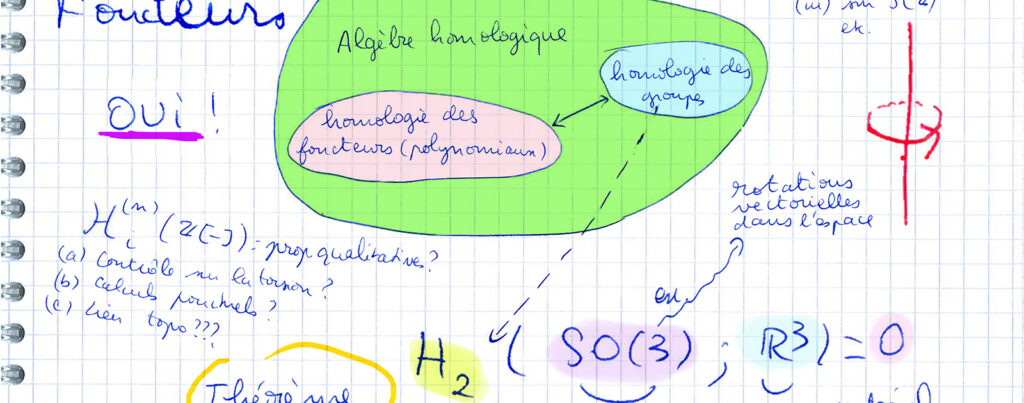 Foncteurs
OUI !
Algèbre homologique
homologie des
groupes
homologie des
foncteurs (polynomiaux)
etc.
rotations
vectorielles
dans l'espace
H_i^(n) (Z[-]) = prop qualitatives ?
(a) Contrôle sur la torsion ?
(b) Calculs ponctuels ?
(c) Lien topo ???
ex
H_2 ( SO(3) ; R^3 ) = 0
Théorème